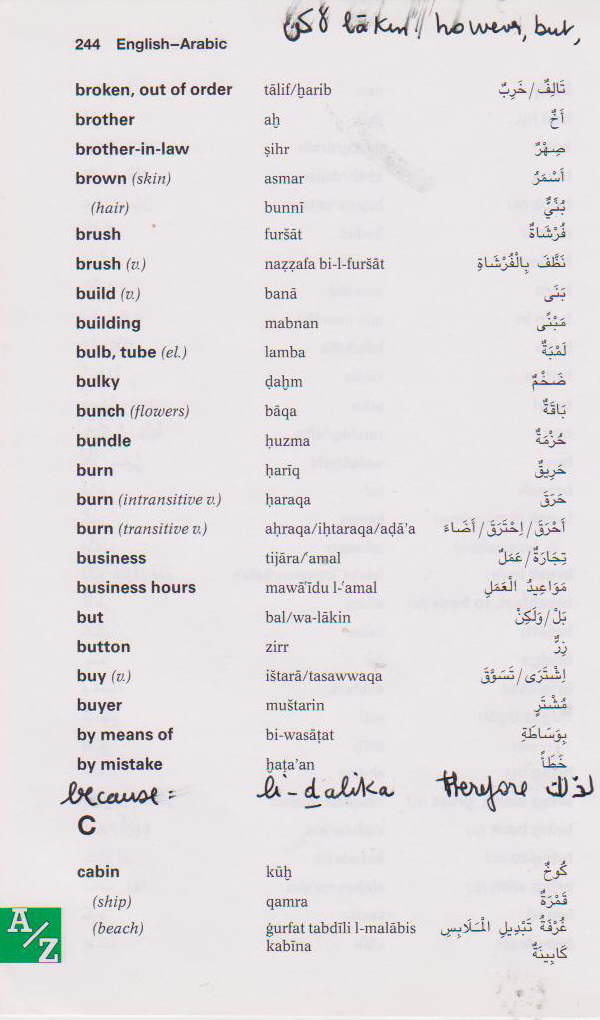 لاكن lākin / however, but,
244 English–Arabic
broken, out of order tālif/ḫarib تَالِفٌ/خَرِبٌ
brother aḫ أَخٌ
brother-in-law ṣihr صِهْرٌ
brown (skin) asmar أَسْمَرُ
(hair) bunnī بُنِّيٌّ
brush furšāt فُرْشَاةٌ
brush (v.) naẓẓafa bi-l-furšāt نَظَّفَ بِالْفُرْشَاةِ
build (v.) banā بَنَى
building mabnan مَبْنًى
bulb, tube (el.) lamba لَمْبَةٌ
bulky ḍaḫm ضَخْمٌ
bunch (flowers) bāqa بَاقَةٌ
bundle ḥuzma حُزْمَةٌ
burn ḥarīq حَرِيقٌ
burn (intransitive v.) ḥaraqa حَرَقَ
burn (transitive v.) aḥraqa/iḥtaraqa/aḍā’a أَحْرَقَ/اِحْتَرَقَ/أَضَاءَ
business tijāra/‘amal تِجَارَةٌ/عَمَلٌ
business hours mawā‘īdu l-‘amal مَوَاعِيدُ الْعَمَلِ
but bal/wa-lākin بَلْ/وَلَكِنْ
button zirr زِرٌّ
buy (v.) ištarā/tasawwaqa اِشْتَرَى/تَسَوَّقَ
buyer muštarin مُشْتَرٍ
by means of bi-wasāṭat بِوَسَاطَةِ
by mistake ḫaṭa’an خَطَأً
because: li-ḏalika therefore لذلك
C
cabin kūḫ كُوخٌ
(ship) qamra قَمْرَةٌ
(beach) ġurfat tabdīli l-malābis غُرْفَةُ تَبْدِيلِ الْمَلَابِسِ
kabīna كَابِينَةٌ
A/Z